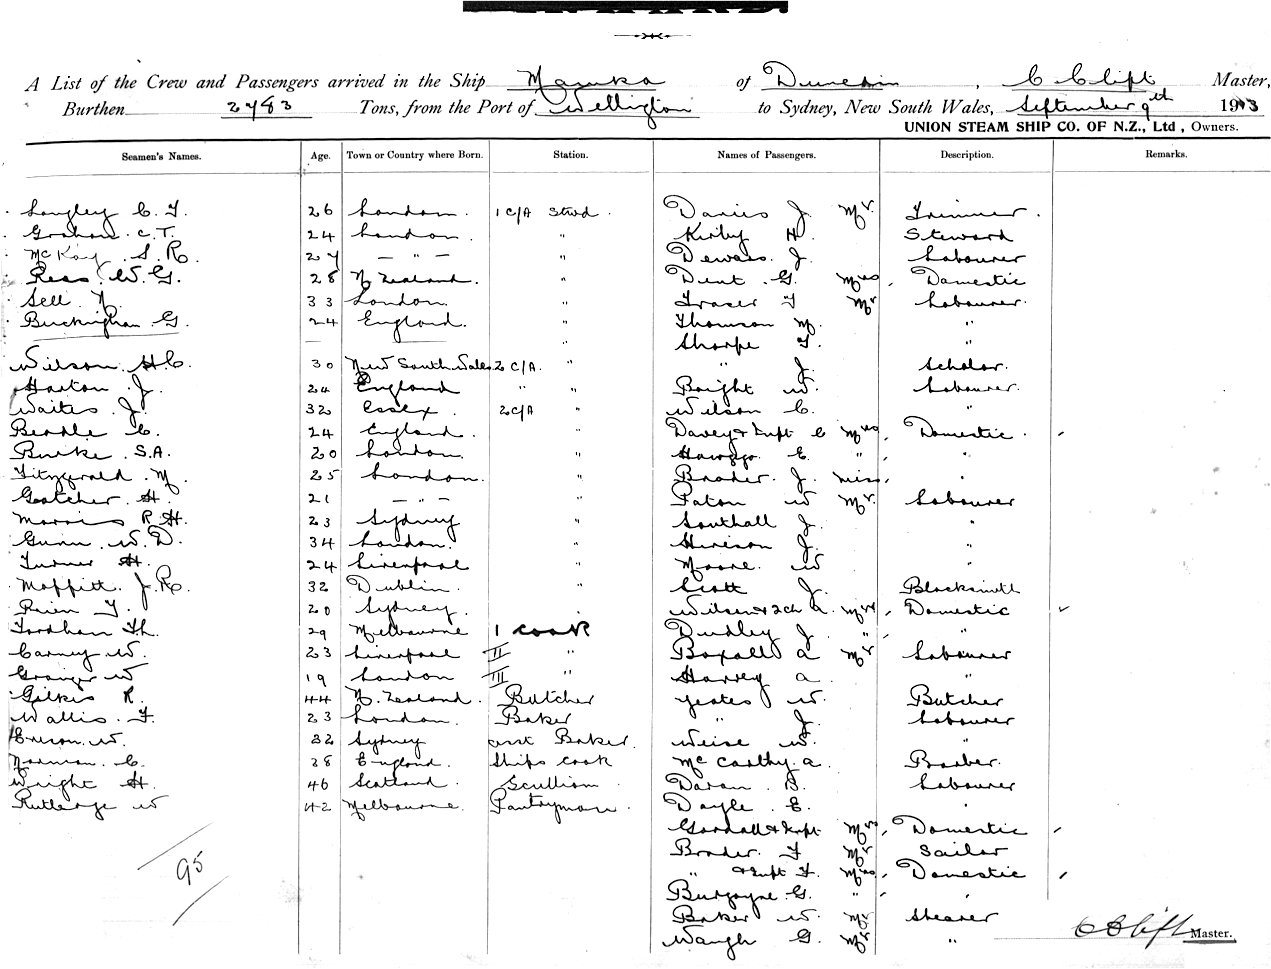 A List of the Crew and Passengers arrived in the Ship Manuka of Dunedin, C Clift Master,
Burthen 2783 Tons, from the Port of Wellington to Sydney, New South Wales, September 9th 1913
UNION STEAM SHIP CO. OF N.Z., Ltd, Owners.
Seamen's Names. Age. Town or Country where Born. Station. Names of Passengers. Description. Remarks.
Langley C. F. 26 London. 1 C/A Stwd. Davies J. Mr. Trimmer.
Graham C.T. 24 London. " Kirby H. Steward
McKay S. R. 27 — " — " J. Labourer
Rees W. G. 28 N Zealand. " Dent G. Mrs. Domestic
Sell N. 33 London " Fraser F Mr Labourer.
Buckingham G. 24 England. " Thomson M. "
" Sharpe F. "
Wilson H. C. 30 New South Wales 2 C/A. " " J. Scholar.
Harton J. 24 England " " Bright W. Labourer.
Waites J. 32 Essex. 2 C/A " Wilson C. "
Beadle C. 24 England. " Davey & Inft C Mrs, Domestic.
Burke S.A. 20 London. " E. " "
Fitzgerald M. 25 London. " J. Miss, "
Gatcher H. 21 — " — " Paton W Mr. Labourer
Morris R H. 23 Sydney " Southall J. "
Gunn W. D. 34 London. " J. "
Turner H. 24 Liverpool " Moore W "
Moffitt J. R. 32 Dublin. " Scott J. Blacksmith
F. 20 Sydney. " Wilson & 2ch A. Mrs, Domestic
Fordham Th. 29 Melbourne 1 Cook Dudley J. " "
Carney W. 23 Liverpool II " Boxall A Mr. Labourer
Grainger W 19 London III Harvey A. "
Gilkis R. 44 N. Zealand. Butcher Yeates W. Butcher
Wallis F. 23 London. Baker " J. Labourer
W. 32 Sydney asst Baker. Weise W. "
Norman C. 28 England. Ships Cook McCarthy A. Barber.
Wright H. 46 Scotland. Scullion. B. Labourer
Rutledge W 42 Melbourne. Pantryman. Doyle E. "
Goodall & Inft Mrs, Domestic
95 Brader F Mr Sailor
" & Inft F. Mrs, Domestic
Burgoyne G. " "
Baker W. Mr Shearer
Waugh G. Mr " C Clift Master.